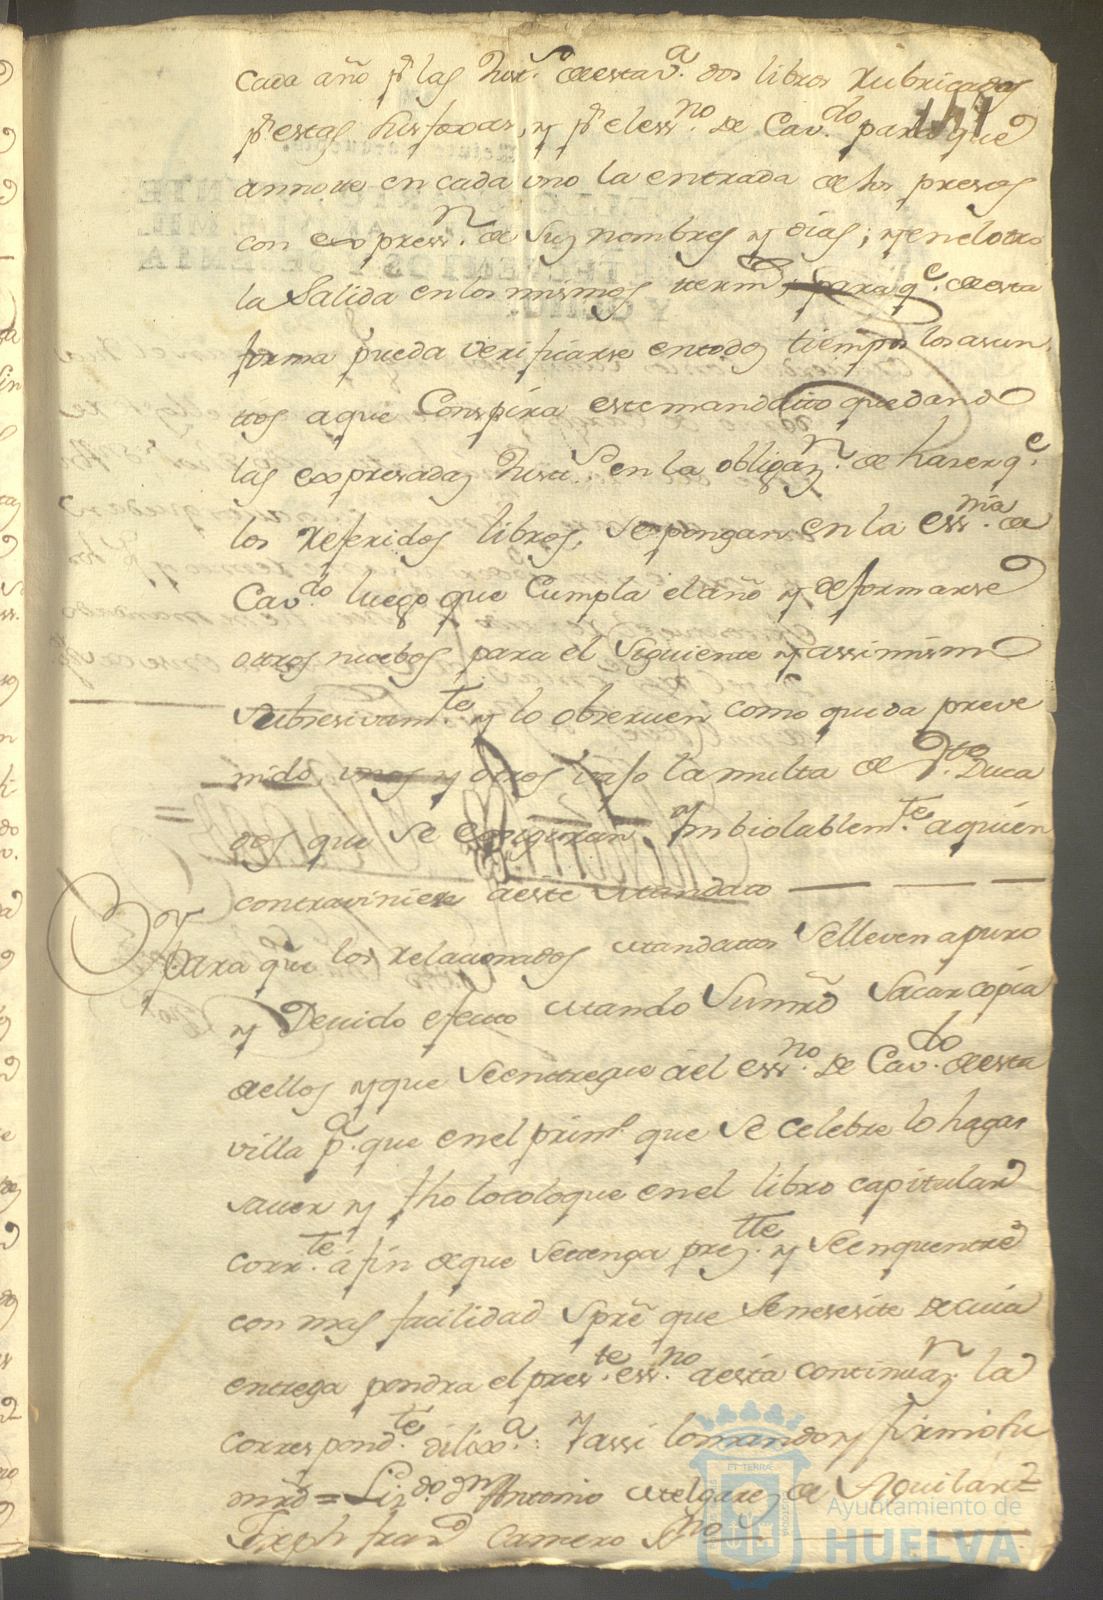 cada año pr las Just.s de esta v.a dos libros Rubricados
141
pr estas Justizias, y pr el ess.no de Cav.do para que
annote en cada uno la entrada de los presos
con express.n de sus nombres y dias; y en el otro
la Salida en los mismos term.s, para q.e de esta
forma pueda verificarse en todos tiempos los asun
ttos a que Conspira este mandatto quedando
las expresadas Justi.s en la obligaz.n de haser q.e
los Referidos libros, se pongan en la ess.nia de
Cav.do luego que Cumpla el año y de formarse
ottros nuebos para el Siguiente y assi mismo
subcesivam.te y lo obseruen como queda preve
nido, unos y otros vaxo la multa de Duca
dos que se exsigiran Ynbiolablem.te a quien
contraviniere a este Mandato
Y para que los Relacionados Mandattos se lleven a puro
y Deuido efecto Mando Su mrd Sacar copia
de ellos y que se entregue a el ess.no de Cav.do de esta
villa p.a que en el prim.o que se celebre lo haga
sauer y fho lo coloque en el libro capitular
corr.te a fin de que se tenga pres.tte y se enquentre
con mas facilidad spre que se nesesite de cuia
entrega pondra el pres.te ess.no a esta continuaz.n la
correspond.te dilix.a: Y assi lo mando y firmo su
mrd = Liz.do dn Antonio Melgarejo de Aguilar =
Joseph fran.co Carrero ss.no
Ayuntamiento de
HUELVA